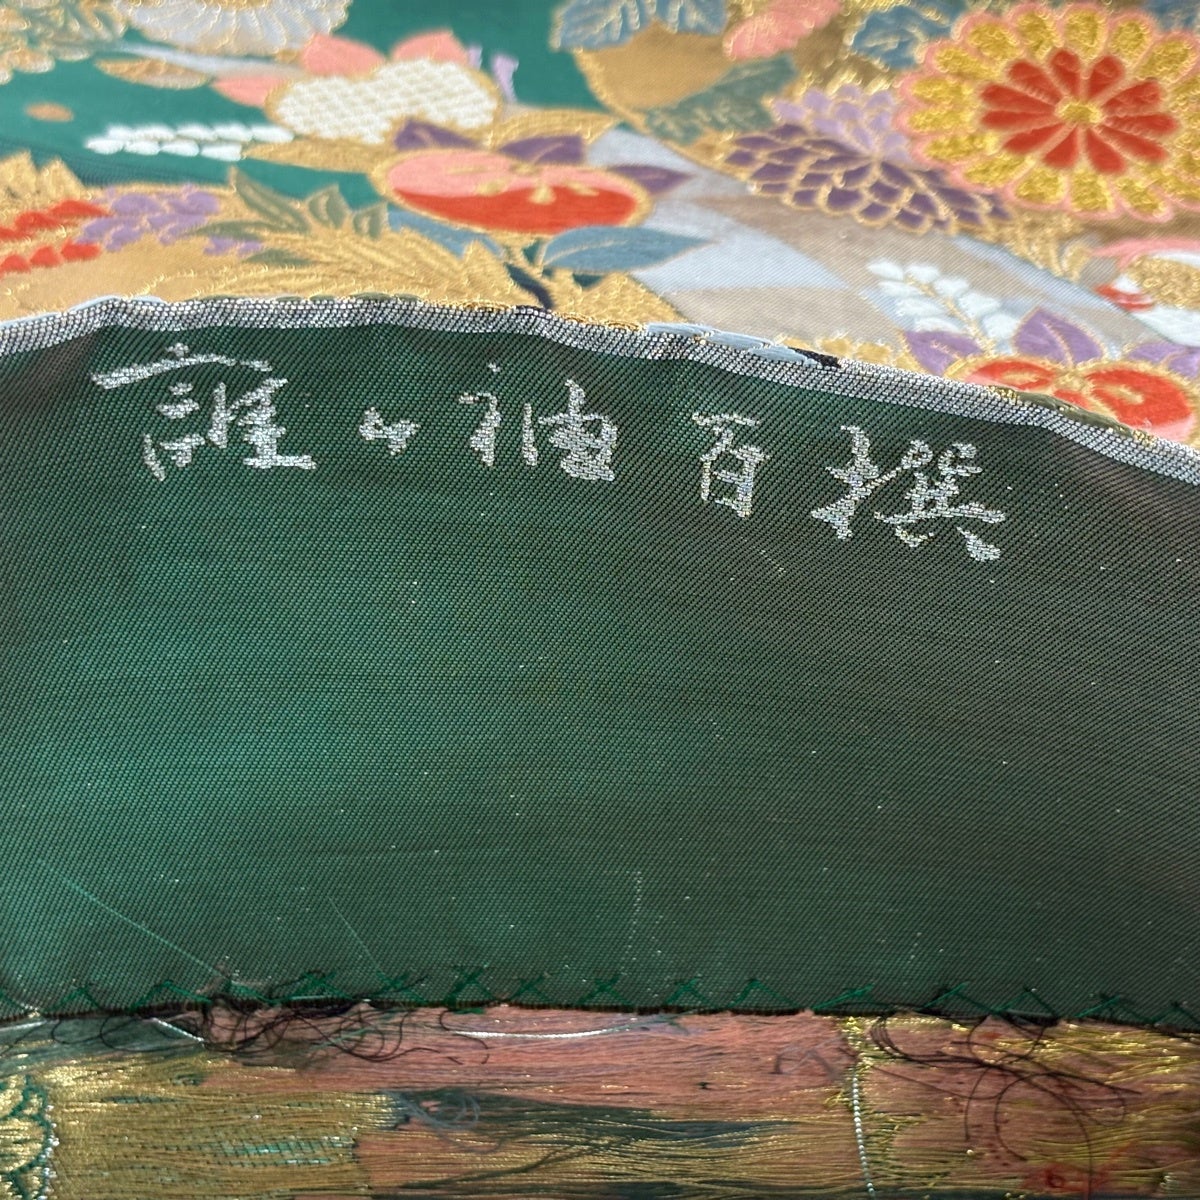 誰ヶ袖百撰